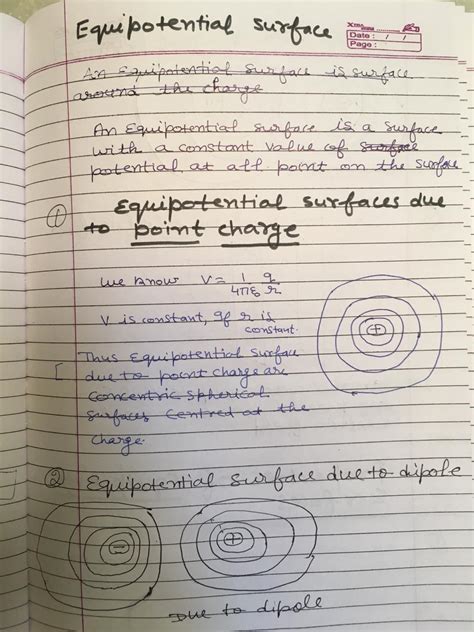 Equipotential surface
Date : / /
Page :
An Equipotential surface is surface
around the charge
An Equipotential surface is a surface
with a constant value of surface
potential at all point on the surface
① Equipotential surfaces due
to point charge
We know V = 1/4πε₀ q/r
V is constant, if r is
constant.
Thus Equipotential surface
due to point charge are
concentric spherical
surfaces centred at the
charge.
+
② Equipotential surface due to dipole
− +
Due to dipole